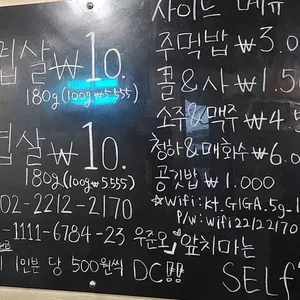 겹살 ₩10.
180g(100g₩5.555)
겹살 ₩10.
180g(100g₩5.555)
02-2212-2170
-1111-6784-23 우준오
1인분 당 500원씩 DC
사이드 메뉴
주먹밥 ₩3.0
콜&사 ₩1.5
소주&맥주 ₩4.5
청하&매화수 ₩6.0
공깃밥 ₩1.000
*wifi: kt_GIGA_5g_1
P/w: wifi22/22170
앞치마는
SELF